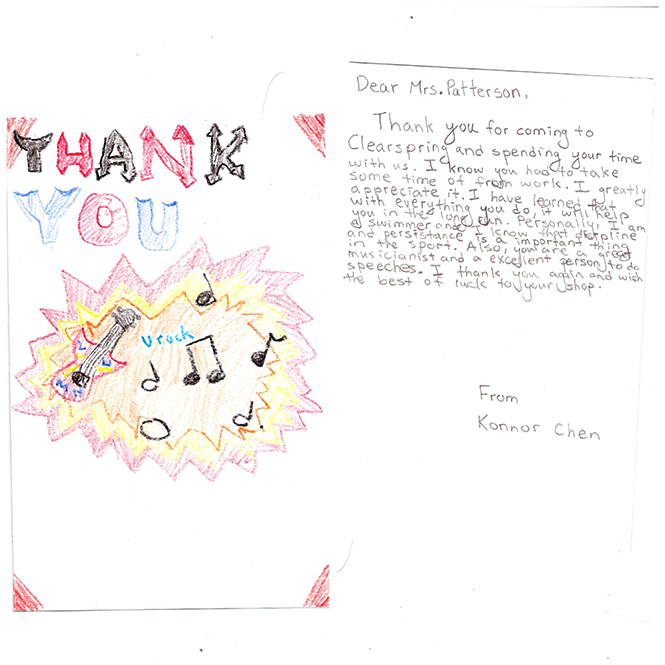 THANK
YOU
U rock
Dear Mrs. Patterson,
Thank you for coming to
Clearspring and spending your time
with us. I know you had to take
some time of from work. I greatly
appreciate it. I have learned that
with everything you do, it will help
you in the long run. Personally, I am
a swimmer and I know that
and persistance is a important thing
in the sport. Also, you are a great
musicianist and a excellent person to do
speeches. I thank you again and wish
the best of luck to your shop.
From
Konnor Chen